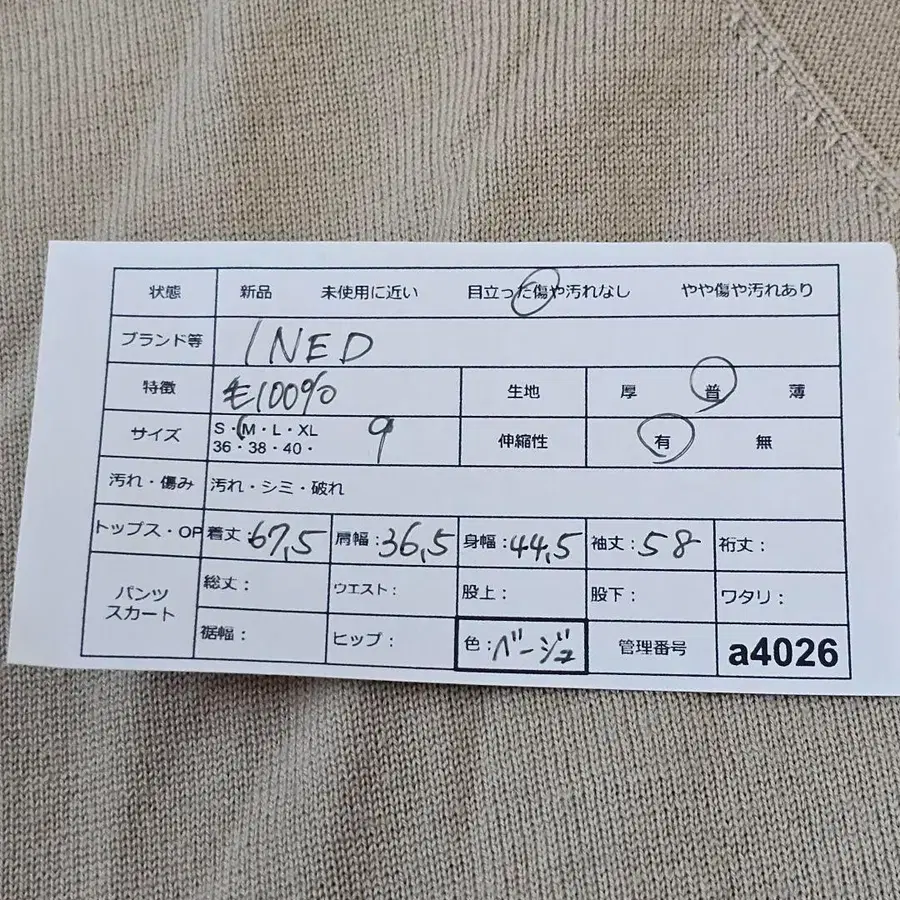 状態 新品 未使用に近い 目立った傷や汚れなし やや傷や汚れあり
ブランド等 INED
特徴 毛100% 生地 厚 普 薄
サイズ S・M・L・XL 9 伸縮性 有 無
36・38・40・
汚れ・傷み 汚れ・シミ・破れ
トップス・OP 着丈:67,5 肩幅:36,5 身幅:44,5 袖丈:58 裄丈:
パンツ 総丈: ウエスト: 股上: 股下: ワタリ:
スカート 裾幅: ヒップ: 色:ベージュ 管理番号 a4026